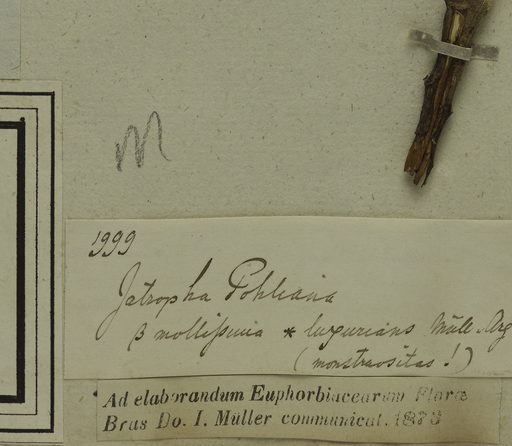 m
1999
Jatropha Pohliana
β mollissima * luxurians Müll. Arg
(monstruositas!)
Ad elaborandum Euphorbiacearum Floræ
Bras Do. I. Müller communicat. 1873